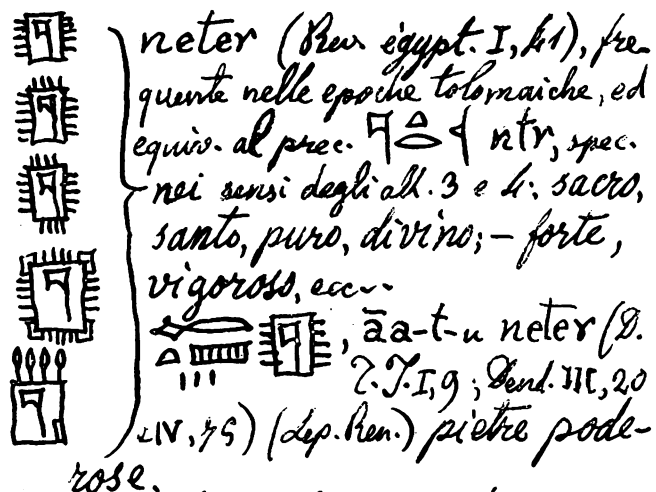 neter (Rev. égypt. I, 41), fre-
quente nelle epoche tolomaiche, ed
equiv. al prec. 𓊹𓏏𓂋 ntr, spec.
nei sensi degli all. 3 e 4: sacro,
santo, puro, divino; – forte,
vigoroso, ecc..
, āa-t-u neter (D.
T. I, 9; Dend. III, 20
e IV, 75) (Lep. Ren.) pietre pode-
rose.